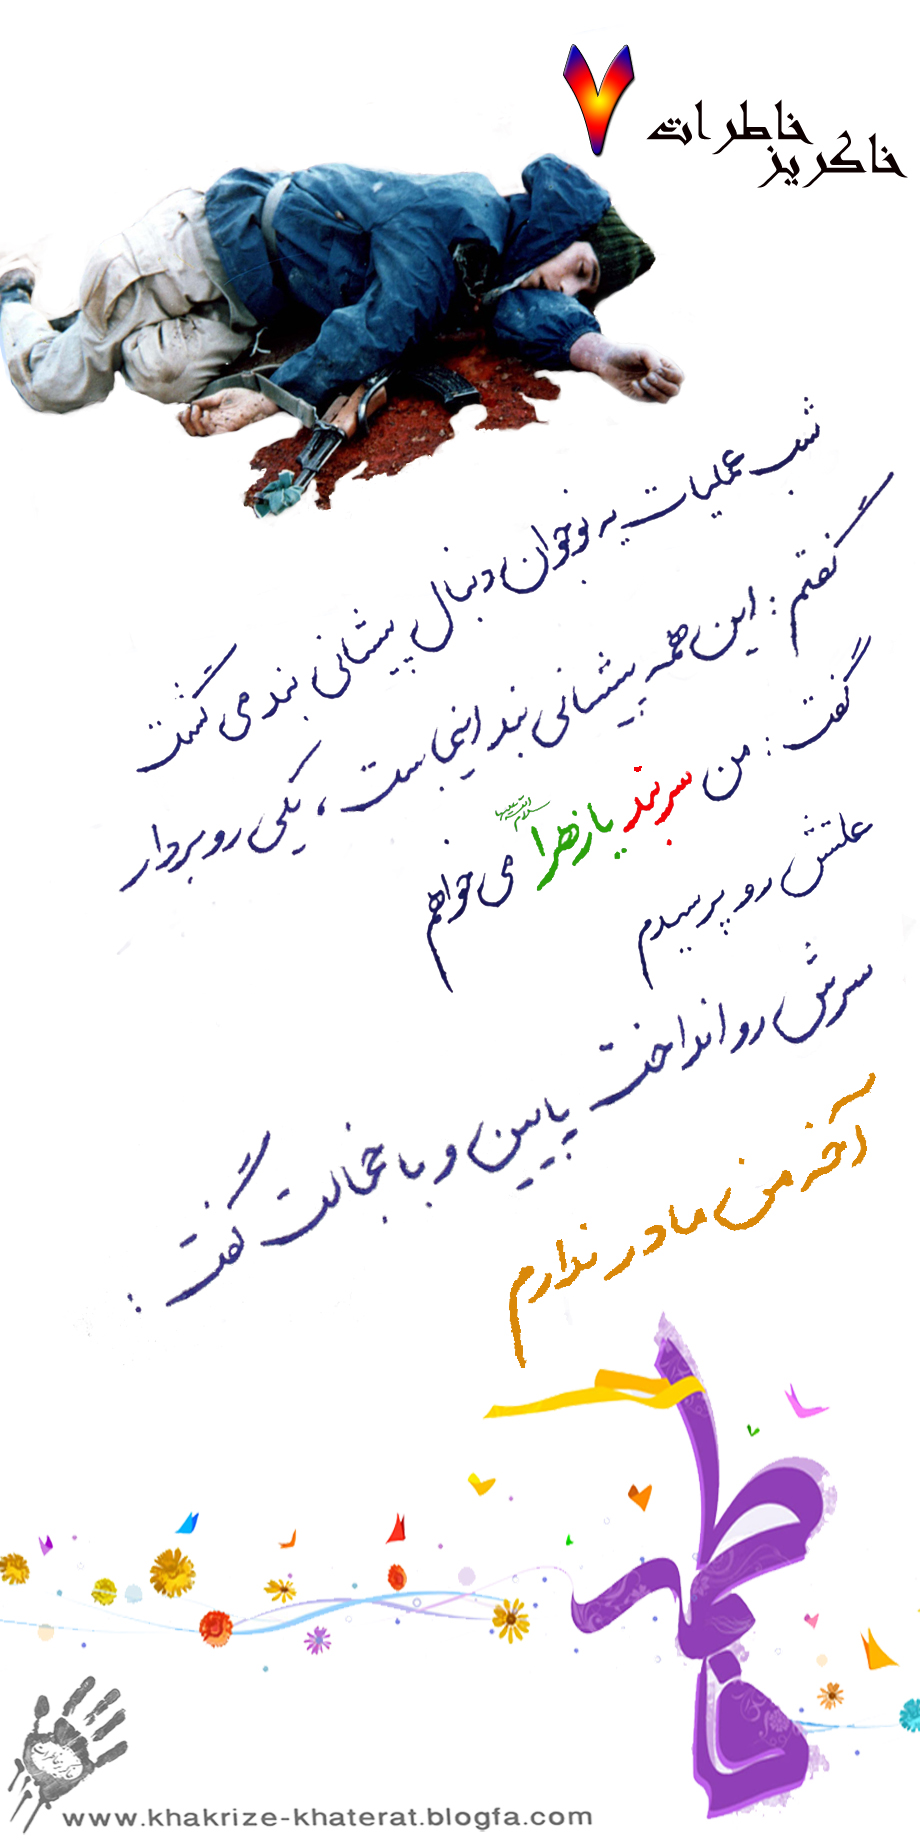 خاکریز خاطرات ۷
شب عملیات یه نوجوان دنبال پیشانی بند می گشت
گفتم : این همه پیشانی بند اینجاست ، یکی رو بردار
گفت : من سربند یا زهرا سلام الله علیها می خواهم
علتش رو پرسیدم
سرش رو انداخت پایین و با خجالت گفت :
آخه من مادر ندارم
فاطمه
www.khakrize-khaterat.blogfa.com